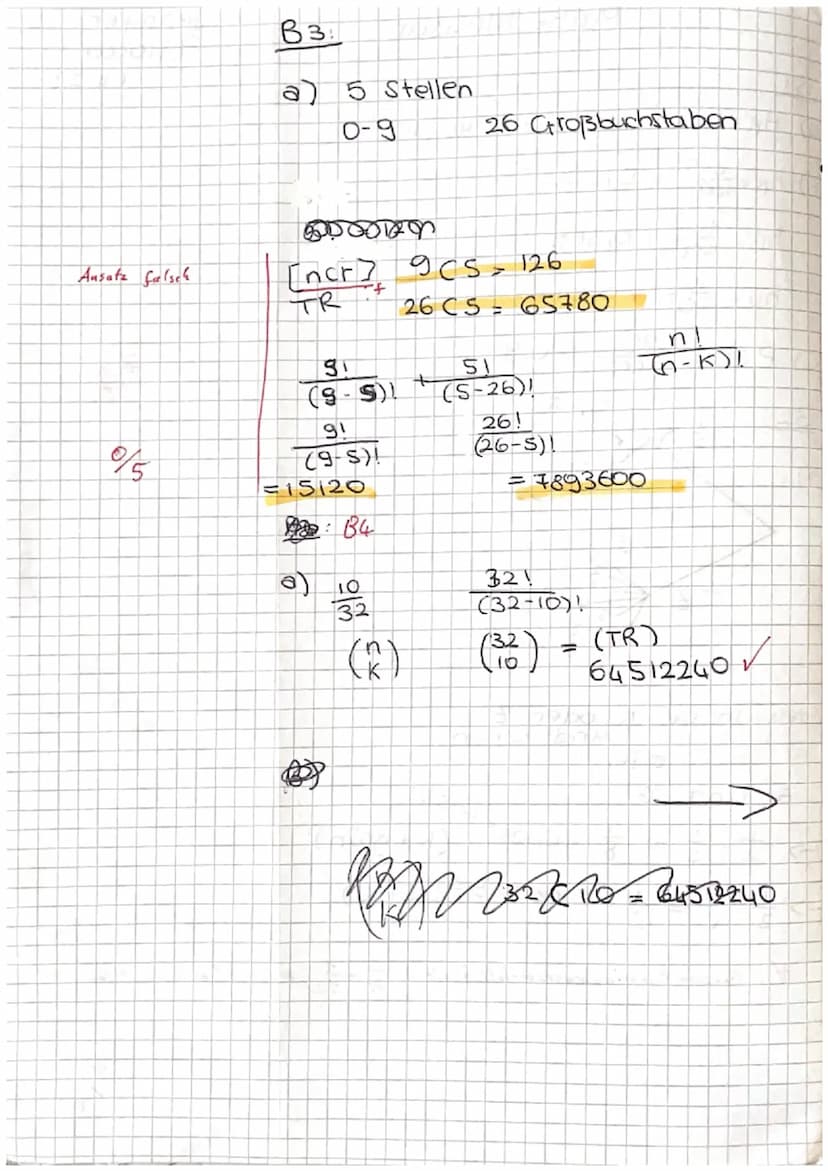 B3:
a) 5 Stellen
0-9 26 Großbuchstaben
Ansatz falsch
[ncr] 9C5 = 126
TR + 26C5 = 65780
n!/(n-k)!
9!/(9-5)! + 5!/(5-26)!
9!/(9-5)! 26!/(26-5)!
0/5
=15120 = 7893600
: B4
a) 10/32 32!/(32-10)!
(n K) (32 10) = (TR)
64512240 ✓
→
32 C 10 = 64512240